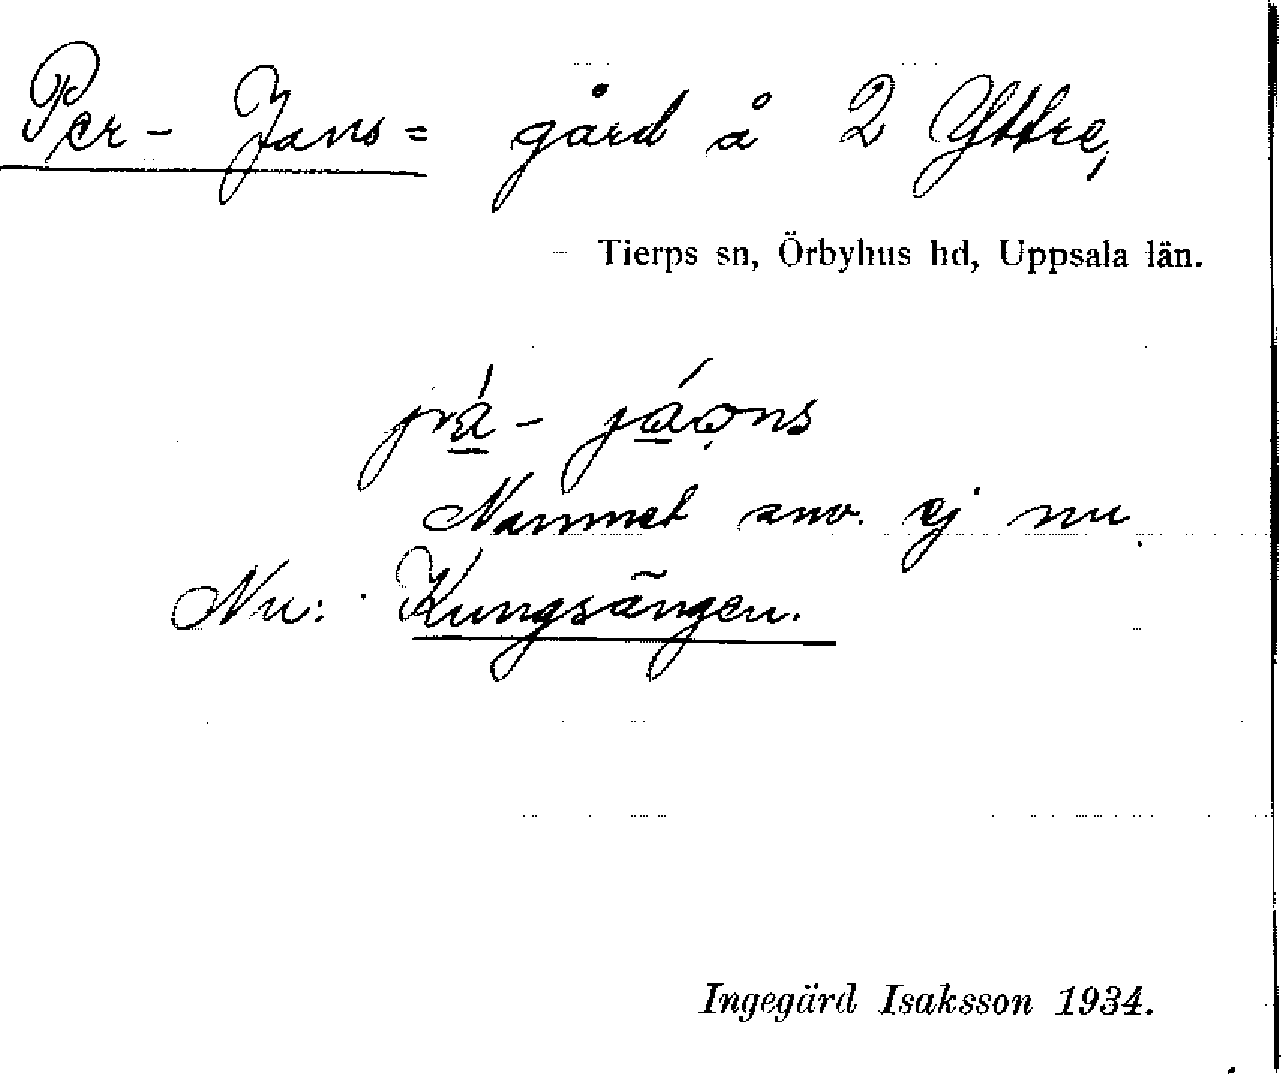 Per-Jans= gård å 2 Yttre,
Tierps sn, Örbyhus hd, Uppsala län.
Namnet anv. ej nu.
Nu: Kungsängen.
Ingegärd Isaksson 1934.